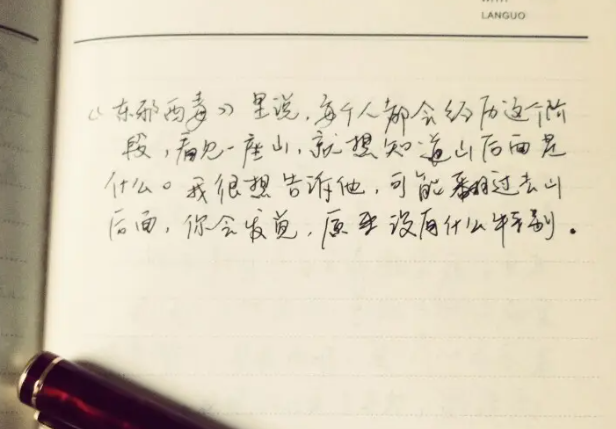 LANGUO
《东邪西毒》里说,每个人都会经历这个阶
段,看见一座山,就想知道山后面是
什么。我很想告诉他,可能翻过去山
后面,你会发觉,原来没有什么特别。